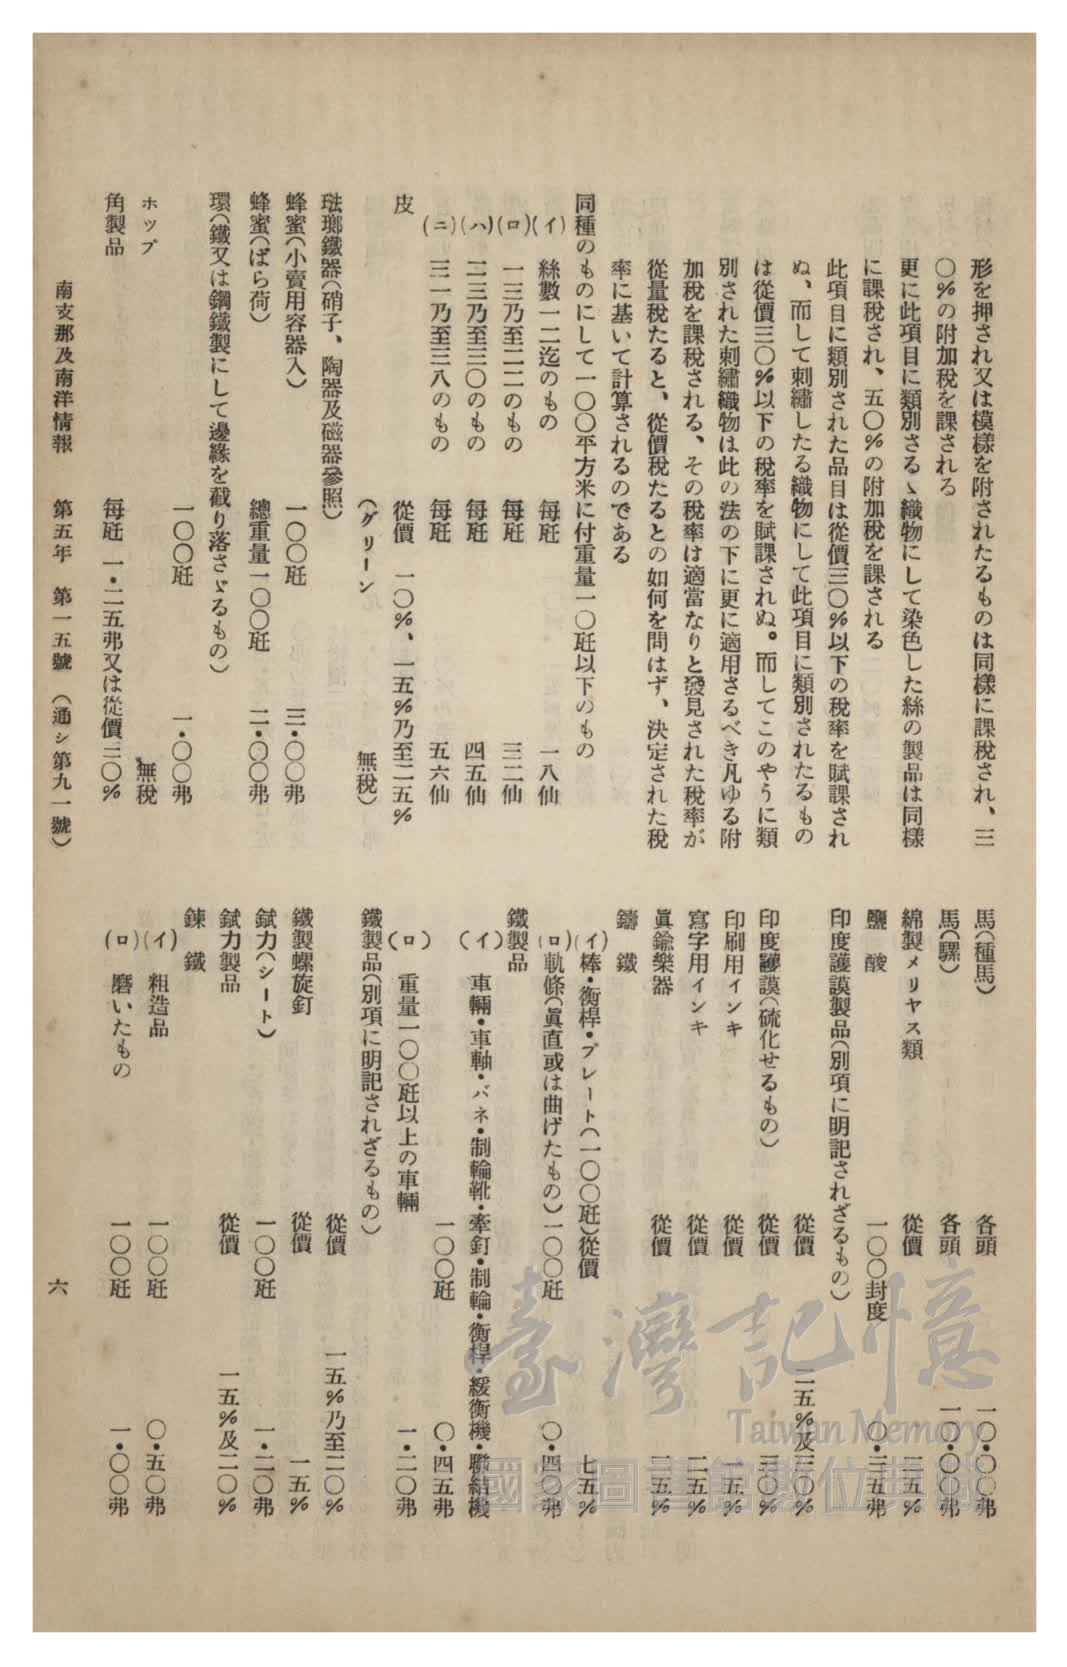 形を押され又は模様を附されたるものは同様に課税され、三
〇%の附加税を課される
更に此項目に類別さるゝ織物にして染色した絲の製品は同様
に課税され、五〇%の附加税を課される
此項目に類別された品目は從價三〇%以下の税率を賦課され
ぬ、而して刺繡したる織物にして此項目に類別されたるもの
は從價三〇%以下の税率を賦課されぬ。而してこのやうに類
別された刺繡織物は此の法の下に更に適用さるべき凡ゆる附
加税を課税される、その税率は適當なりと發見された税率が
從量税たると、從價税たるとの如何を問はず、決定された税
率に基いて計算されるのである
同種のものにして一〇〇平方米に付重量一〇瓩以下のもの
(イ) 絲數一二迄のもの 每瓩 一八仙
(ロ) 一三乃至二二のもの 每瓩 三二仙
(ハ) 二三乃至三〇のもの 每瓩 四五仙
(ニ) 三一乃至三八のもの 每瓩 五六仙
皮 從價 一〇%、一五%乃至二五%
(グリーン 無税)
琺瑯鐵器(硝子、陶器及磁器參照)
蜂蜜(小賣用容器入) 一〇〇瓩 三・〇〇弗
蜂蜜(ばら荷) 總重量一〇〇瓩 二・〇〇弗
環(鐵又は鋼鐵製にして邊緣を截り落さゞるもの)
一〇〇瓩 一・〇〇弗
ホップ 無税
角製品 每瓩 一・二五弗又は從價三〇%
馬(種馬) 各頭 一〇・〇〇弗
馬(騾) 各頭 一〇・〇〇弗
綿製メリヤス類 從價 三五%
鹽酸 一〇〇封度 〇・三五弗
印度護謨製品(別項に明記されざるもの)
從價 二五%及三〇%
印度護謨(硫化せるもの) 從價 三〇%
印刷用インキ 從價 一五%
寫字用インキ 從價 二五%
眞鍮樂器 從價 二五%
鑄鐵
(イ)棒・衡桿・プレート(一〇〇瓩)從價 七五%
(ロ)軌條(眞直或は曲げたもの)一〇〇瓩 〇・四〇弗
鐵製品
(イ) 車輛・車軸・バネ・制輪靴・牽釘・制輪・衡桿・緩衡機・聯結機
一〇〇瓩 〇・四五弗
(ロ) 重量一〇〇瓩以上の車輛 一・二〇弗
鐵製品(別項に明記されざるもの)
從價 一五%乃至二〇%
鐵製螺旋釘 從價 一五%
錻力(シート) 一〇〇瓩 一・二〇弗
錻力製品 從價 一五%及二〇%
鍊鐵
(イ) 粗造品 一〇〇瓩 〇・五〇弗
(ロ) 磨いたもの 一〇〇瓩 一・〇〇弗
南支那及南洋情報 第五年 第一五號 (通シ第九一號) 六
臺灣記憶
Taiwan Memory
國家圖書館數位典藏